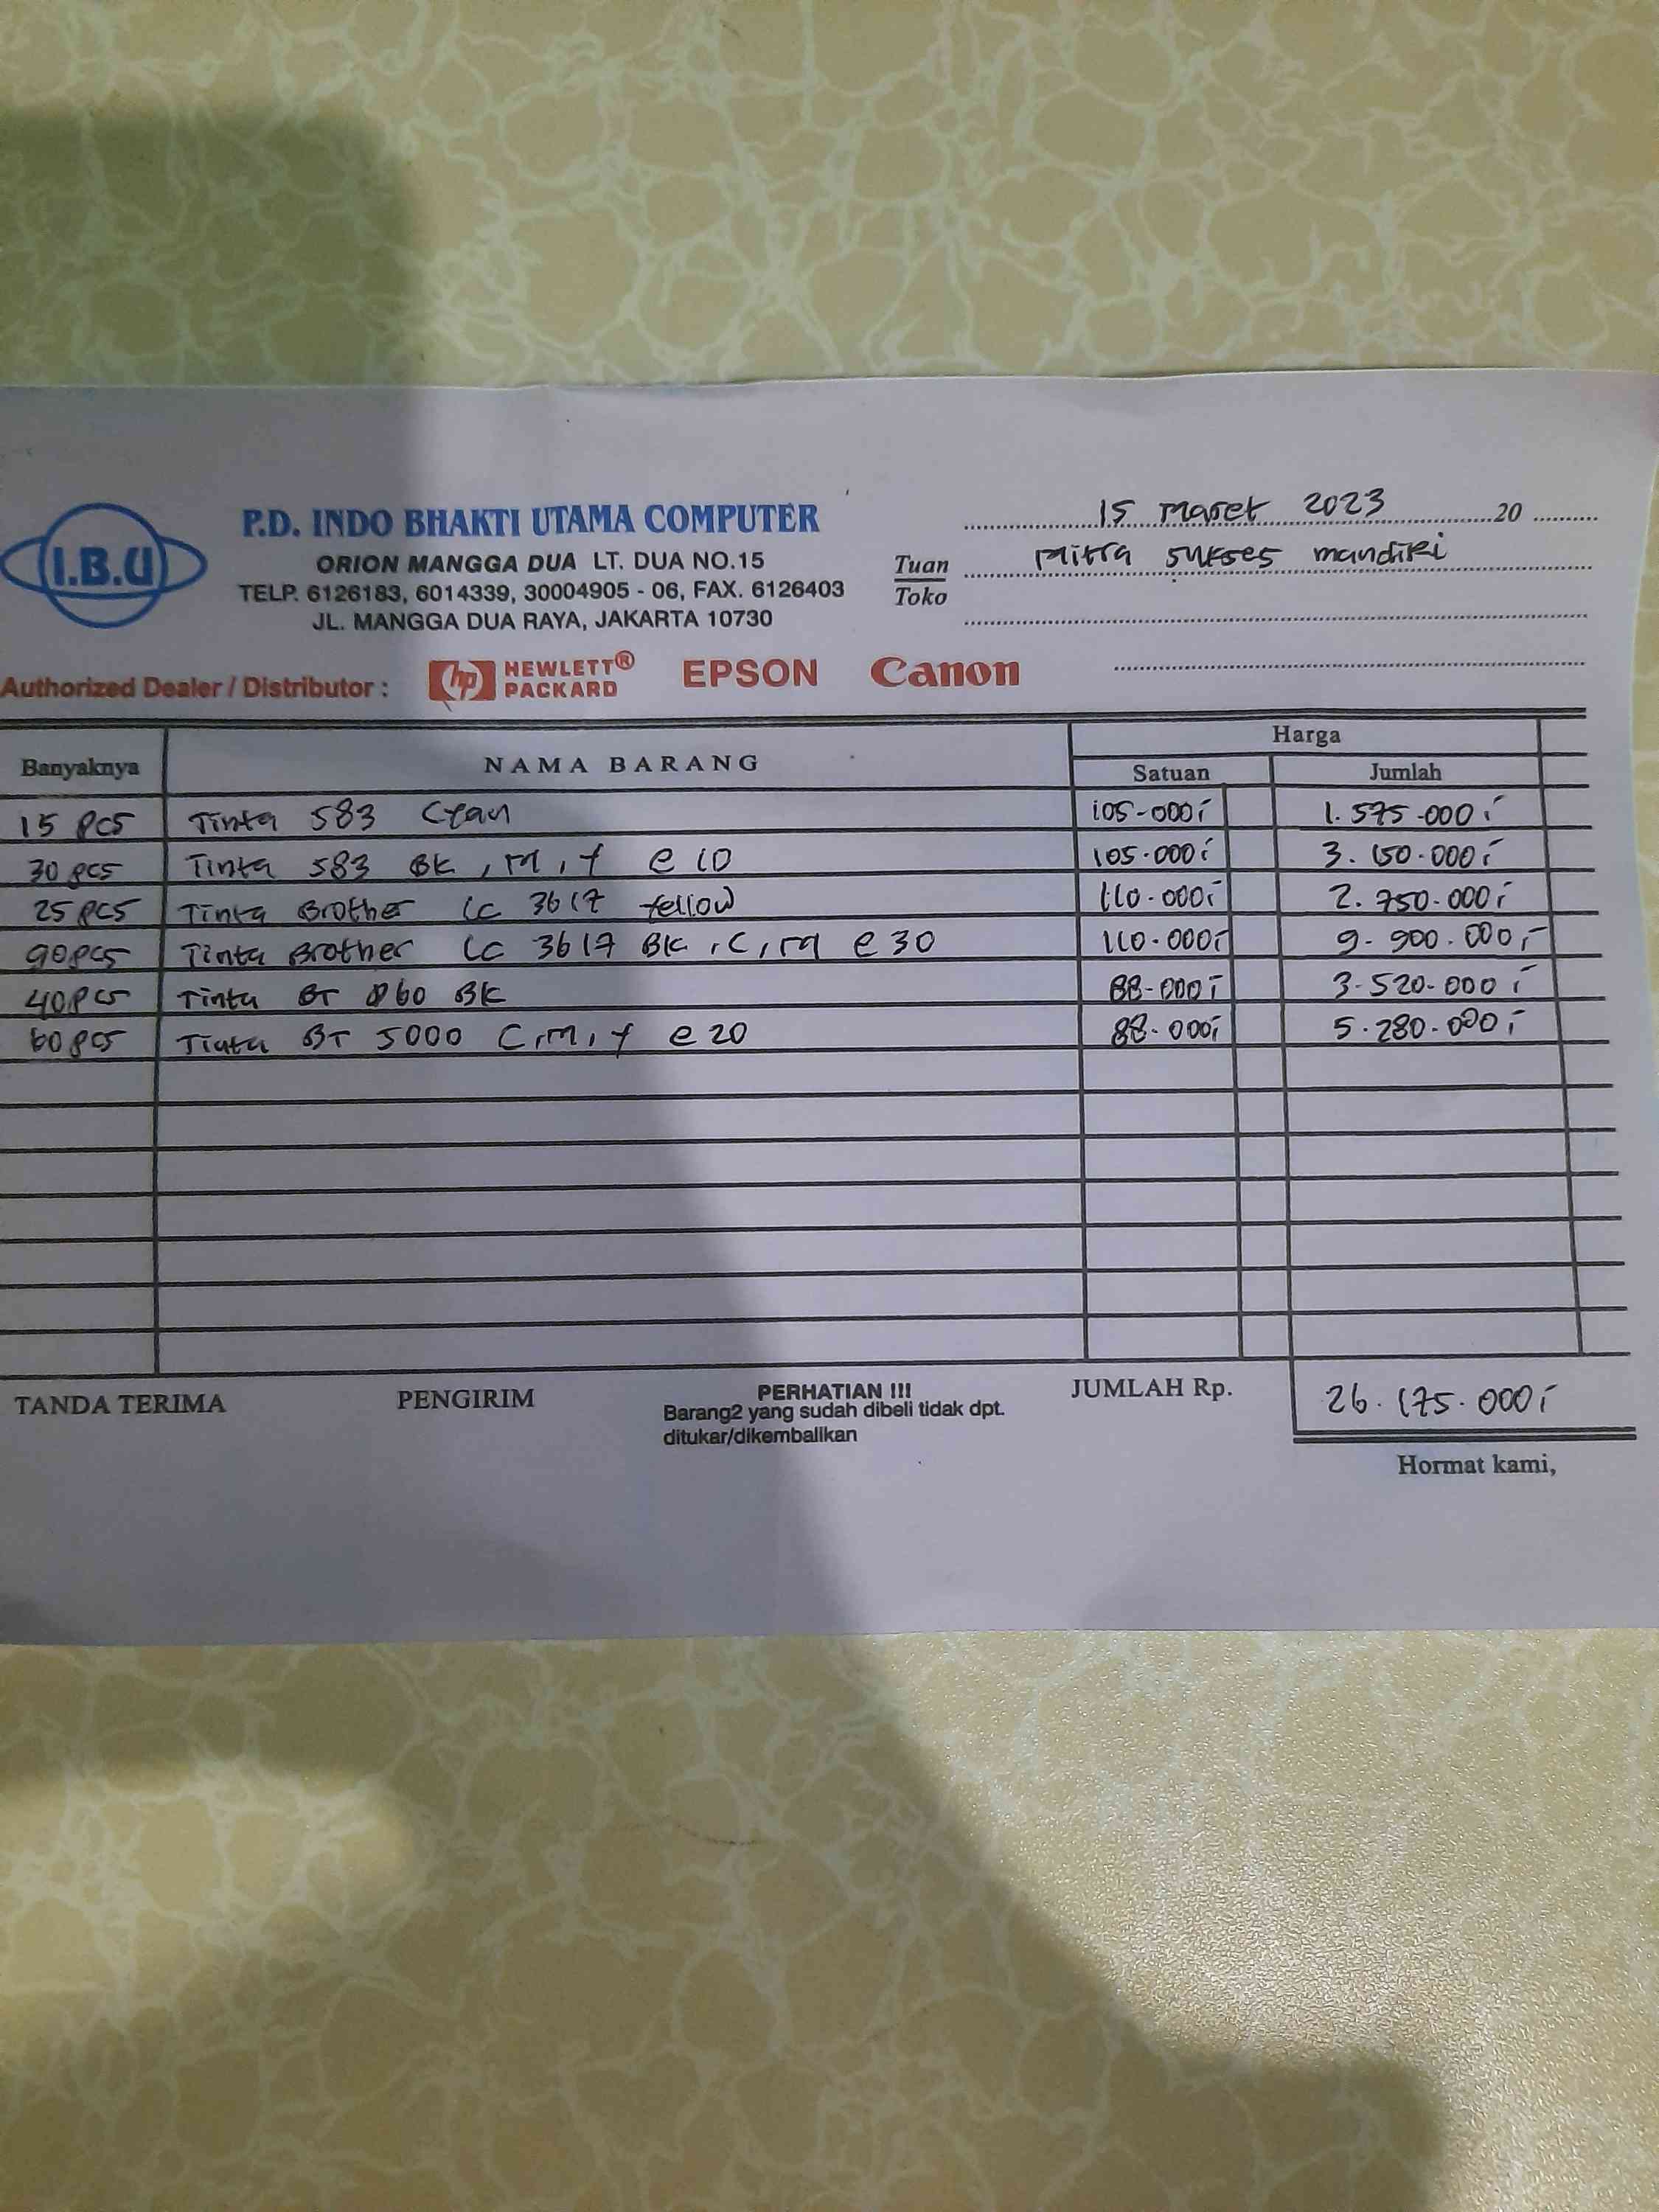 I.B.U
P.D. INDO BHAKTI UTAMA COMPUTER
ORION MANGGA DUA LT. DUA NO.15
TELP. 6126183, 6014339, 30004905 - 06, FAX. 6126403
JL. MANGGA DUA RAYA, JAKARTA 10730
15 maret 2023 20
Tuan Mitra sukses mandiri
Toko
Authorized Dealer / Distributor : hp HEWLETT® PACKARD EPSON Canon
Banyaknya NAMA BARANG Harga
Satuan Jumlah
15 pcs Tinta 583 Cyan 105.000,- 1.575.000,-
30 pcs Tinta 583 BK, M, Y @ 10 105.000,- 3.150.000,-
25 pcs Tinta Brother LC 3617 Yellow 110.000,- 2.750.000,-
90 pcs Tinta Brother LC 3617 BK, C, M @ 30 110.000,- 9.900.000,-
40 pcs Tinta BT D60 BK 88.000,- 3.520.000,-
60 pcs Tinta BT 5000 C, M, Y @ 20 88.000,- 5.280.000,-
TANDA TERIMA PENGIRIM PERHATIAN !!! JUMLAH Rp. 26.175.000,-
Barang2 yang sudah dibeli tidak dpt.
ditukar/dikembalikan
Hormat kami,